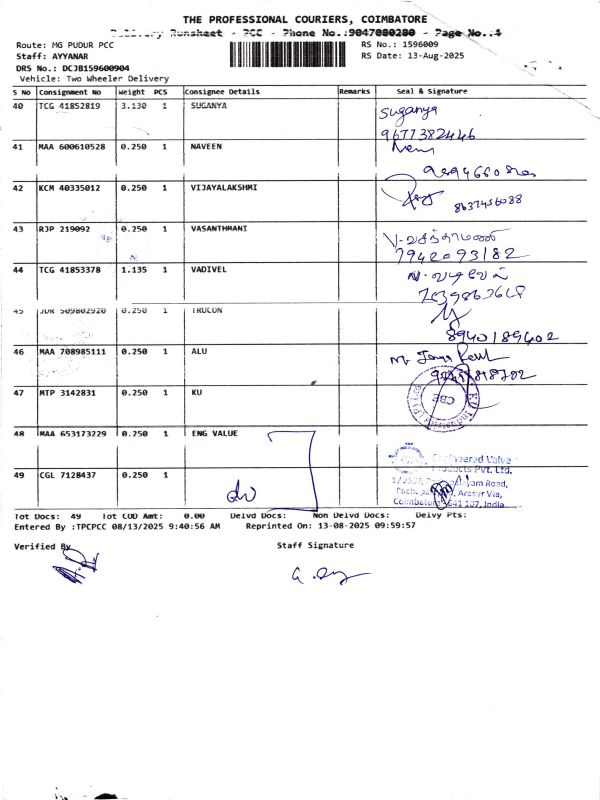 THE PROFESSIONAL COURIERS, COIMBATORE
Delivery Runsheet - PCC - Phone No.:9047080280 - Page No.:4
Route: MG PUDUR PCC
RS No.: 1596009
Staff: AYYANAR
RS Date: 13-Aug-2025
DRS No.: DCJB159600904
Vehicle: Two Wheeler Delivery
S No Consignment No Weight PCS Consignee Details Remarks Seal & Signature
40 TCG 41852819 3.130 1 SUGANYA Suganya
9677382446
41 MAA 600610528 0.250 1 NAVEEN
42 KCM 40335012 0.250 1 VIJAYALAKSHMI
43 RJP 219092 0.250 1 VASANTHMANI V-வசந்தாமணி
7942093182
44 TCG 41853378 1.135 1 VADIVEL வடிவேல்
45 JDR 509802920 0.250 1 TRUCON
8940189402
46 MAA 708985111 0.250 1 ALU
47 MTP 3142831 0.250 1 KU
CBE
48 MAA 653173229 0.250 1 ENG VALUE
Engineered Valve
Products Pvt. Ltd.
49 CGL 7128437 0.250 1 do
Road,
Arasur Via,
Coimbatore 641 107, India
Tot Docs: 49 Tot COD Amt: 0.00 Delvd Docs: Non Delvd Docs: Delvy Pts:
Entered By :TPCPCC 08/13/2025 9:40:56 AM Reprinted On: 13-08-2025 09:59:57
Verified By
Staff Signature